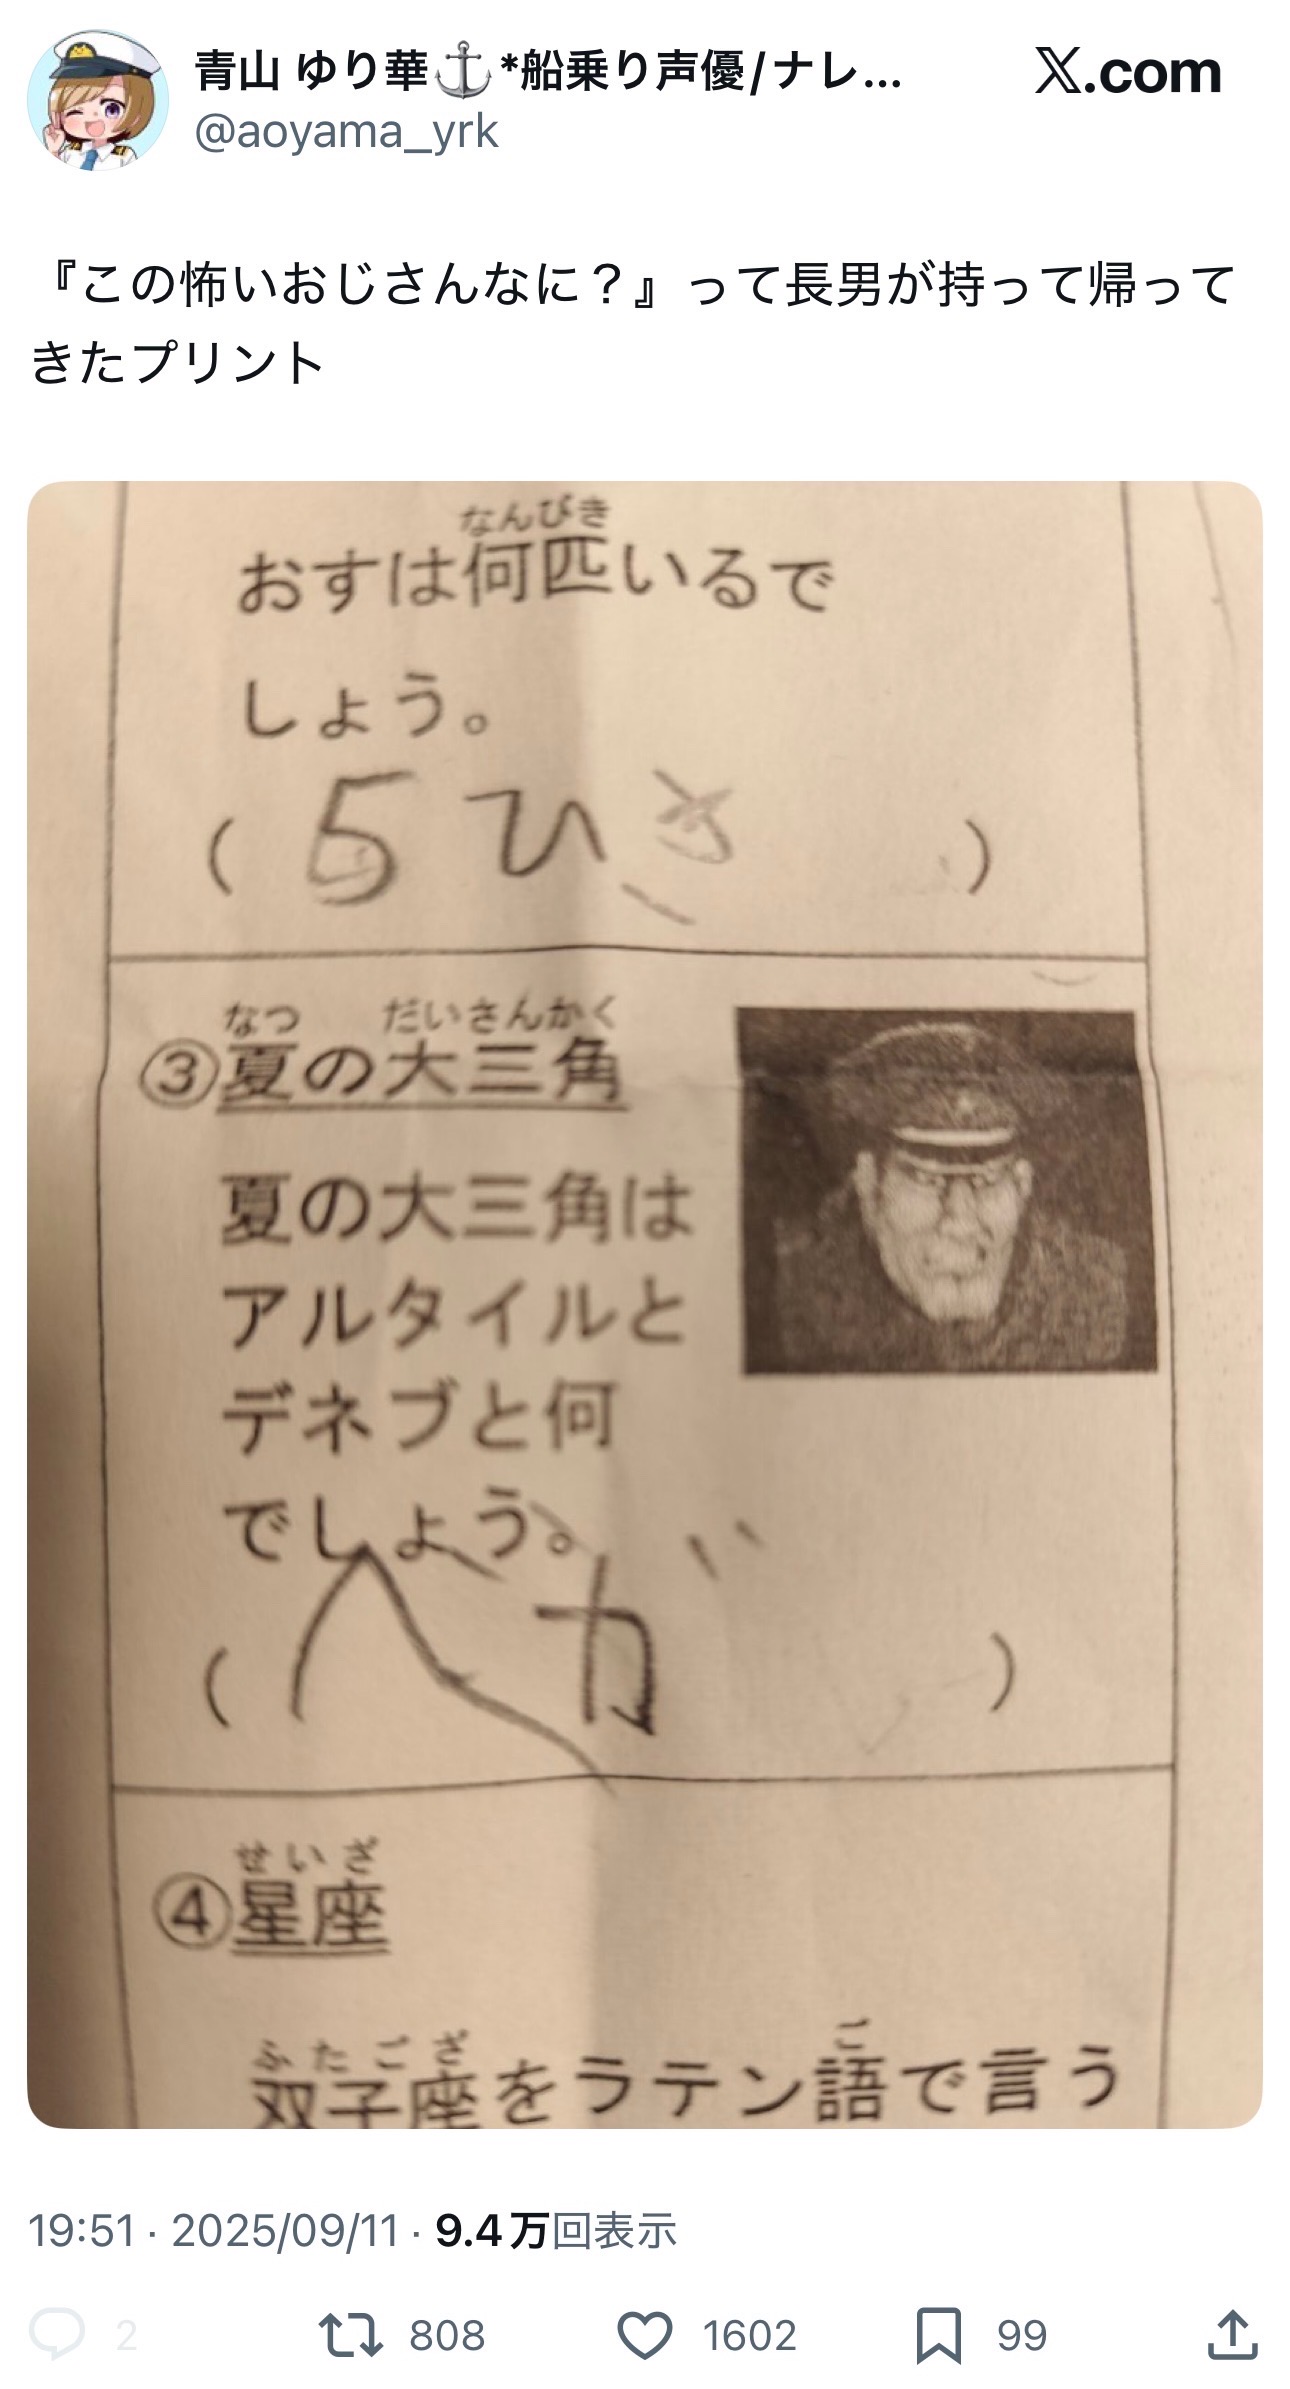 青山 ゆり華⚓*船乗り声優/ナレ...
X.com
@aoyama_yrk
『この怖いおじさんなに？』って長男が持って帰って
きたプリント
なんびき
おすは何匹いるで
しょう。
( 5ひき )
なつ だいさんかく
③夏の大三角
夏の大三角は
アルタイルと
デネブと何
でしょう。
( ベガ )
せいざ
④星座
ふたござ ご
双子座をラテン語で言う
19:51 · 2025/09/11 · 9.4万回表示
2 808 1602 99